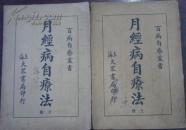 百病自療叢書
月經病自療法
上海大眾書局印行
百病自療叢書
月經病自療法
上海大眾書局印行